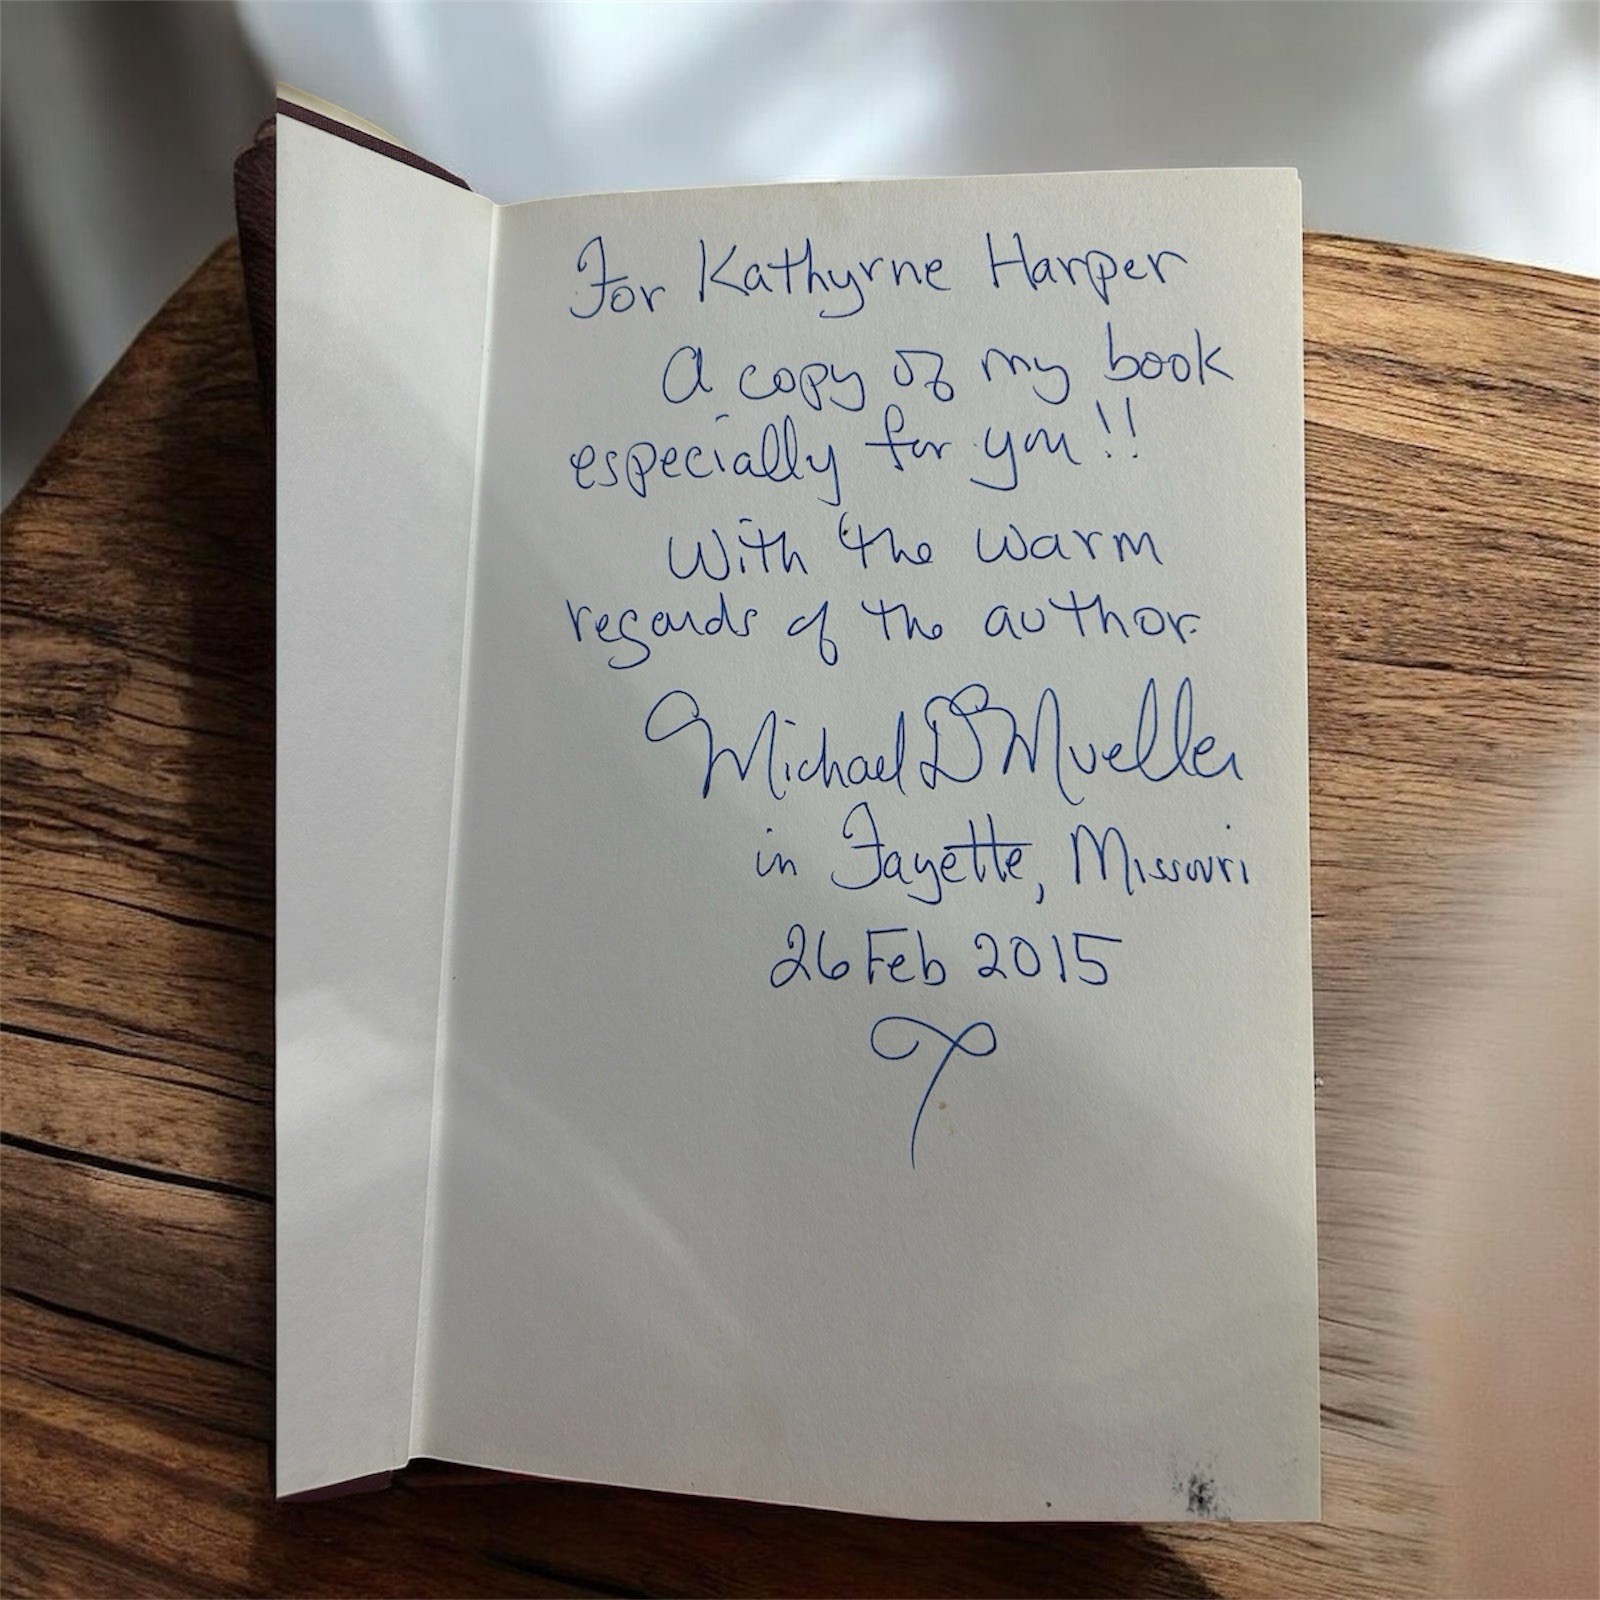 For Kathyrne Harper
A copy of my book
especially for you!!
With the warm
regards of the author.
Michael D Mueller
in Fayette, Missouri
26 Feb 2015